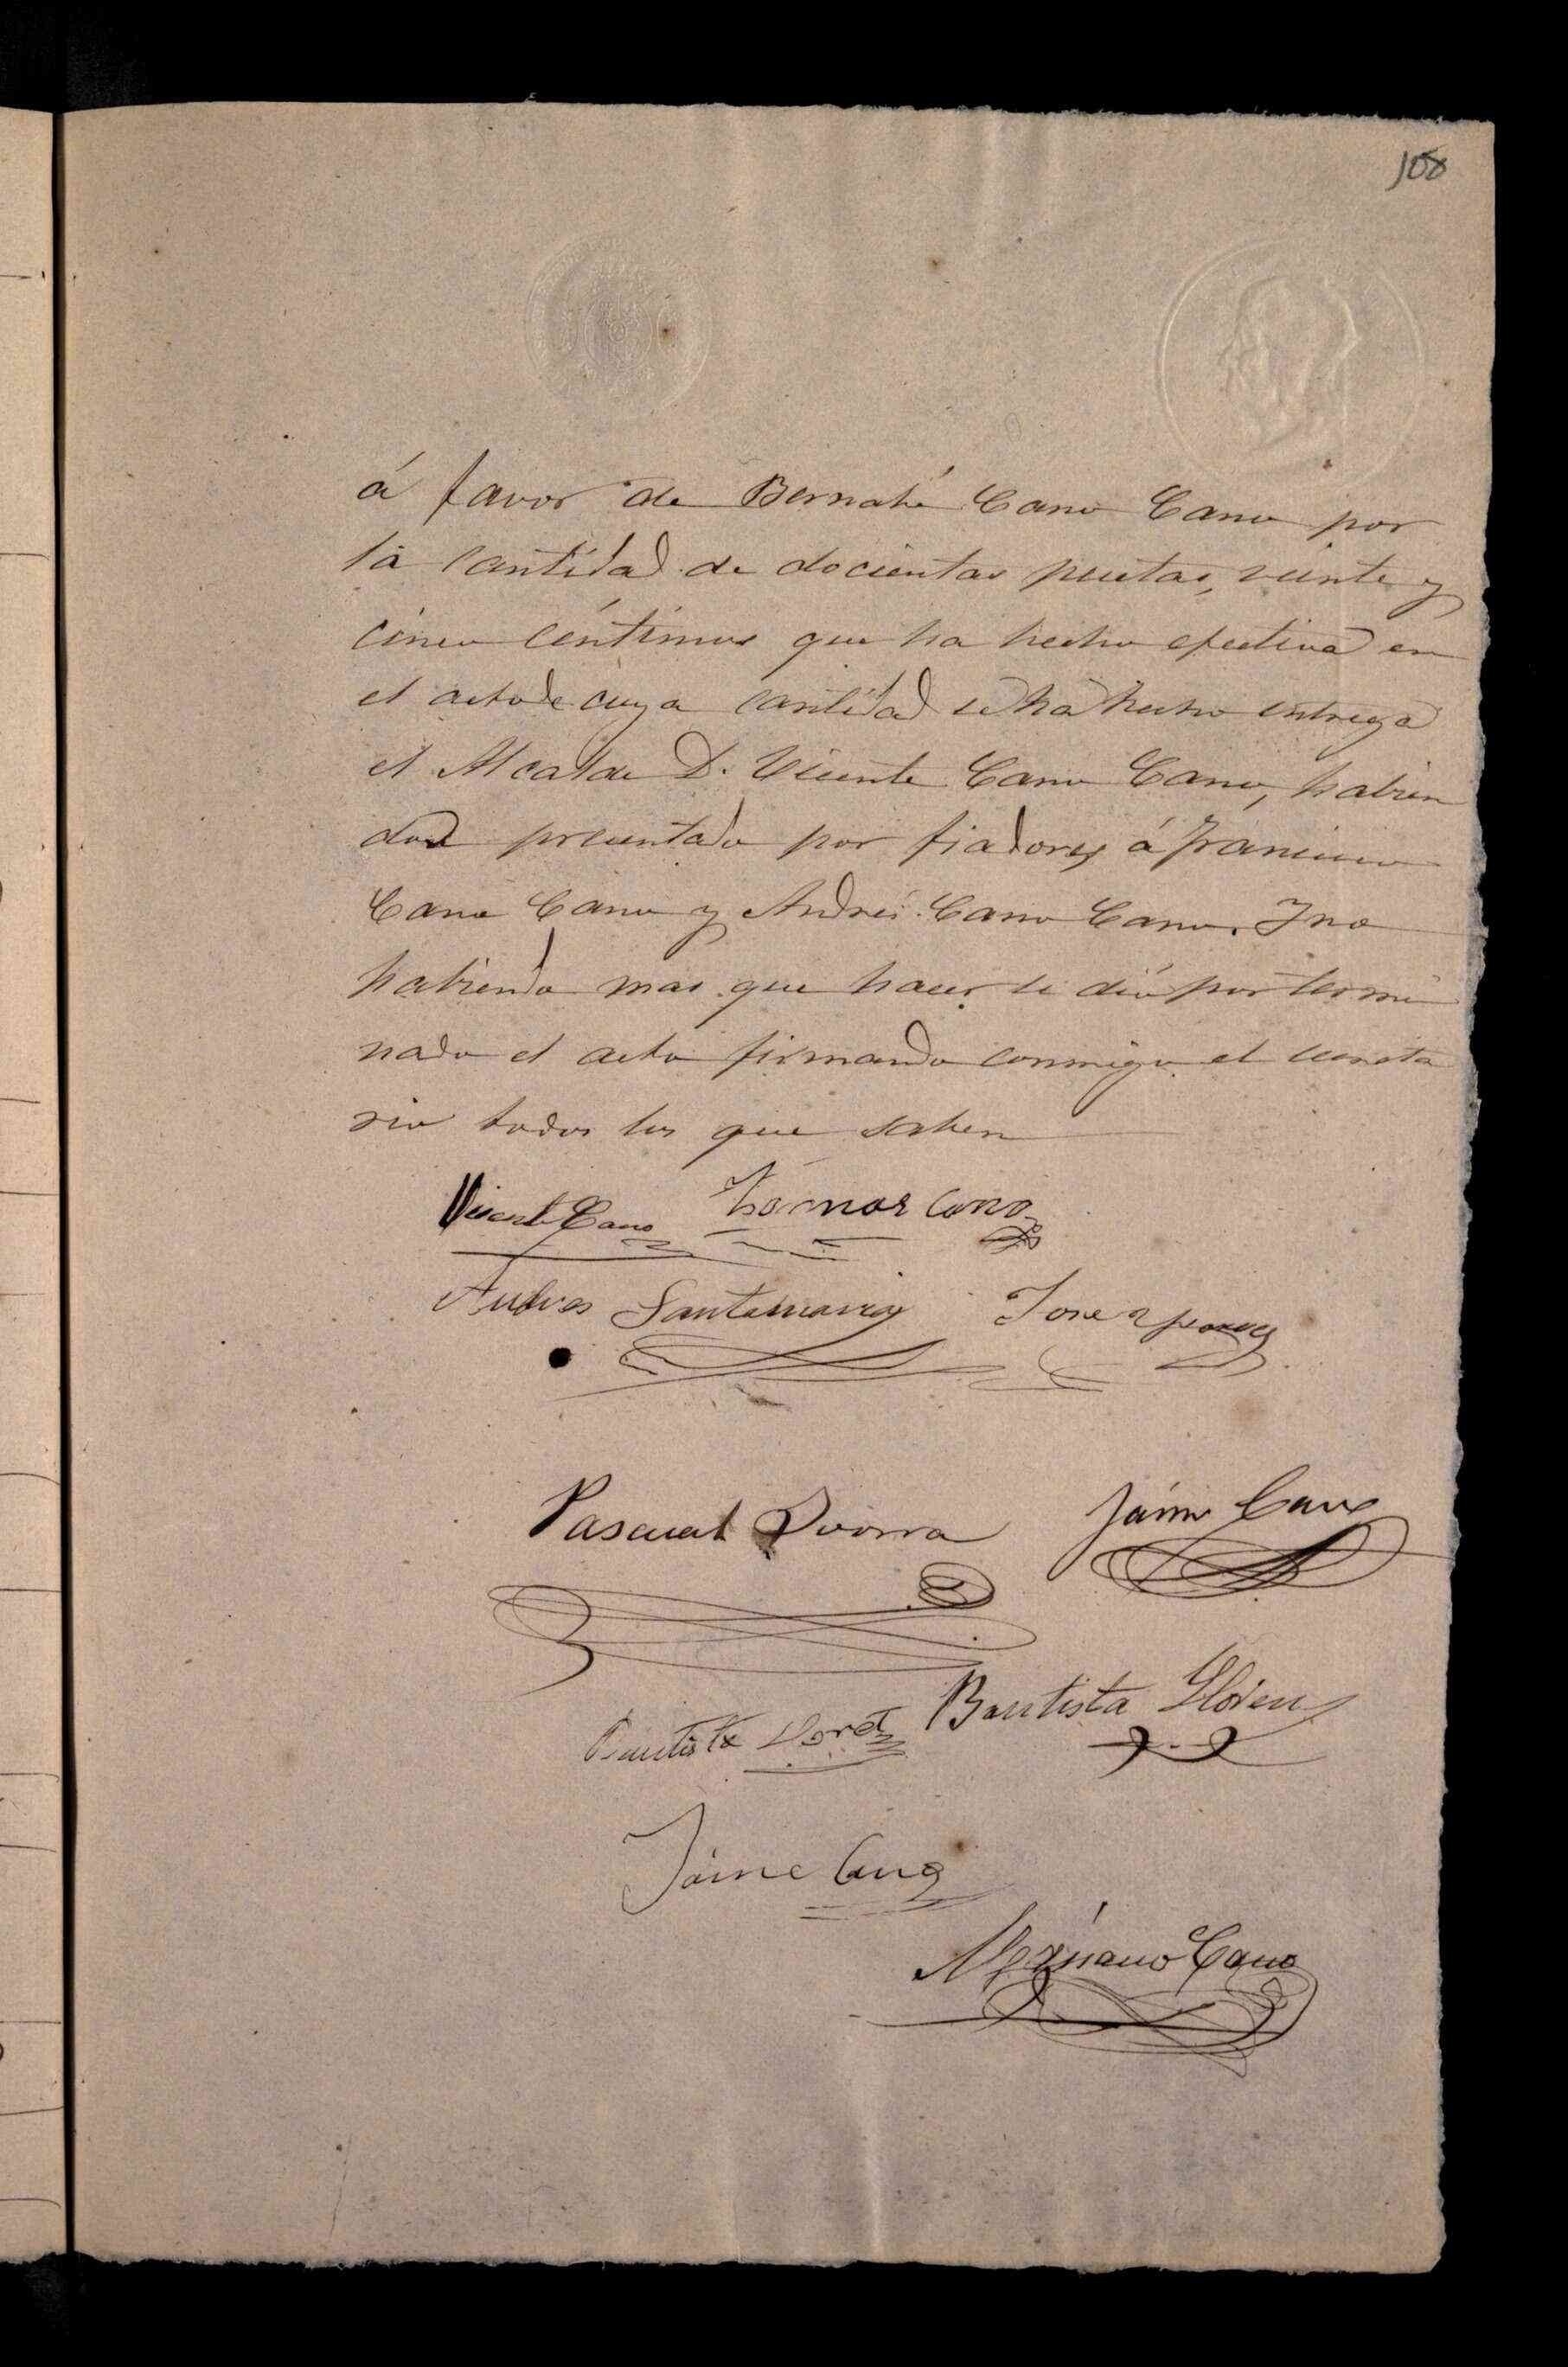 108
á favor de Bernabé Cano Cano por
la cantidad de docientas pesetas, veinte y
cinco céntimos que ha hecho efectiva en
el acto de cuya cantidad se ha hecho entrega
el Alcalde D. Vicente Cano Cano, habien
dose presentado por fiadores á Francisco
Cano Cano y Andrés Cano Cano. Y no
habiendo mas que hacer se dió por termi
nado el acto firmando conmigo el secreta
rio todos los que saben
Vicente Cano Thomas Cano
Andres Santamaria Jose
Pascual Jaime Cano
Bautista Lloret Bautista Llorens
Jaime Cano
Cano